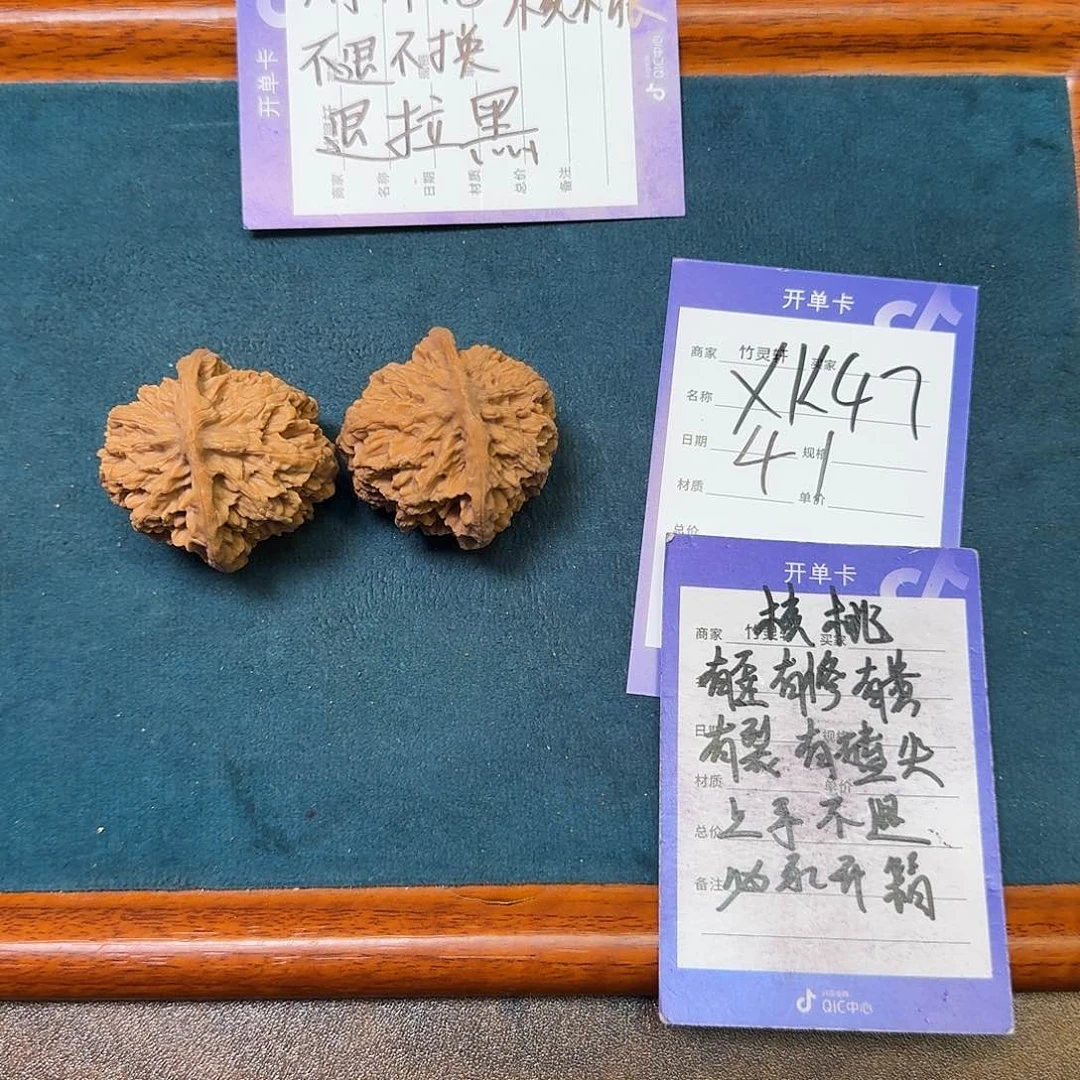 不退不换
退拉黑
开单卡
商家
名称
日期
材质
总价
备注
QIC中心
开单卡
商家 竹灵轩 买家
XK47
名称
日期 规格
41
材质 单价
总价
开单卡
核桃
商家 竹灵轩 买家
有歪有修有黄
有裂有磕尖
材质 单价
上手不退
总价
备注
必录开箱
QIC中心